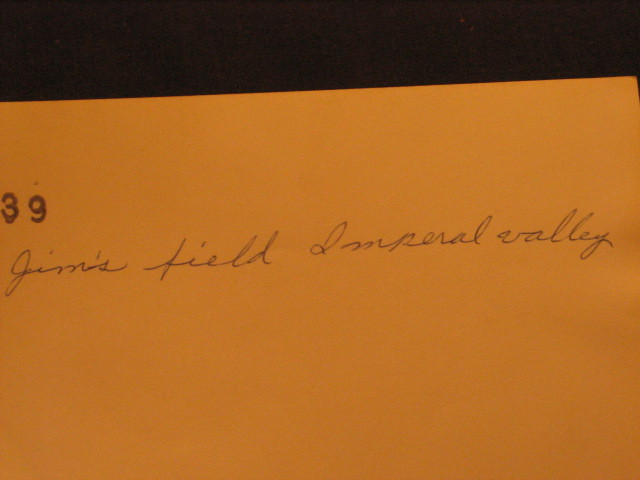 39
Jim's field Imperal valley